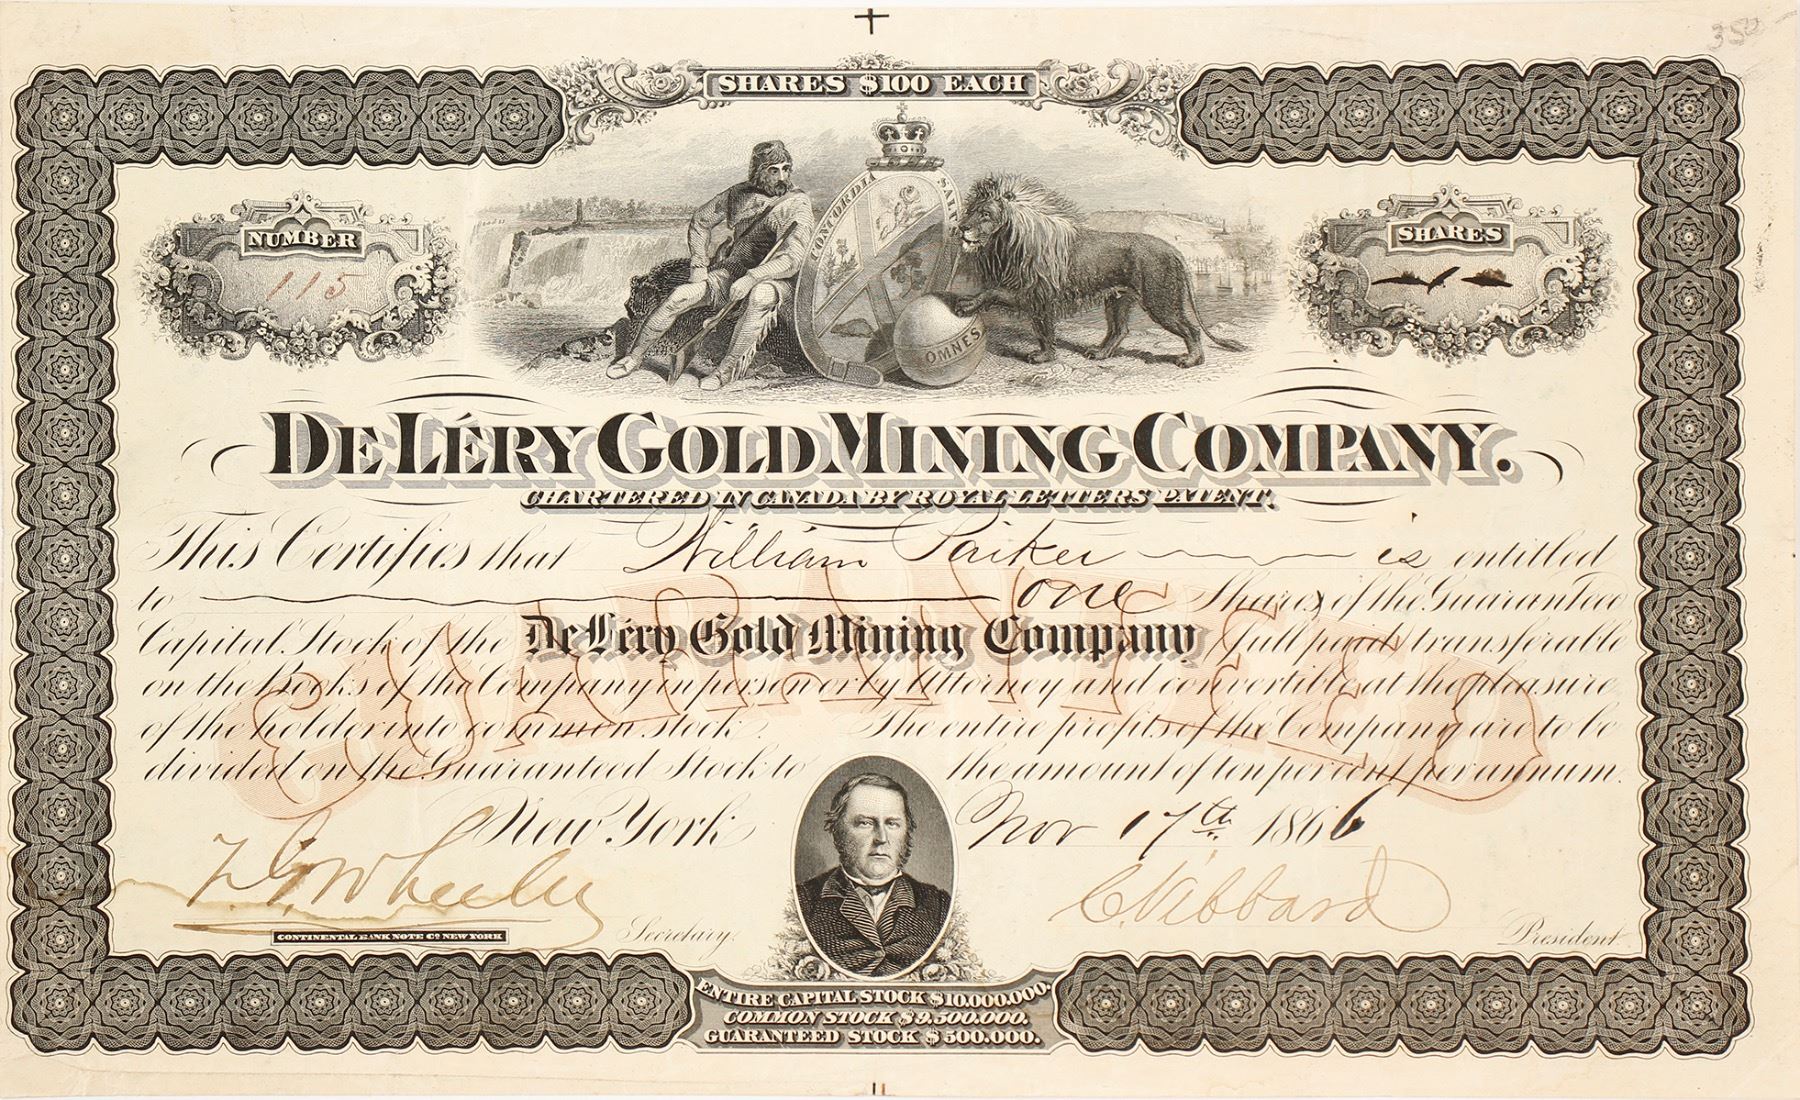 350
SHARES $100 EACH
CONCORDIA SALUS
NUMBER
SHARES
115
OMNES
DE LÉRY GOLD MINING COMPANY.
CHARTERED IN CANADA BY ROYAL LETTERS PATENT.
This Certifies that William Parker is entitled
to one Shares of the Guaranteed
Capital Stock of the De Léry Gold Mining Company full paid transferable
on the Books of the Company in person or by Attorney and convertible at the pleasure
of the holder into common stock. The entire profits of the Company are to be
divided on the Guaranteed Stock to the amount of ten per cent per annum.
GUARANTEED
New York Nov 17th 1866
Wheeler Secretary.
C. Hibbard President.
CONTINENTAL BANK NOTE Co. NEW YORK
ENTIRE CAPITAL STOCK $10.000.000.
COMMON STOCK $9,500.000.
GUARANTEED STOCK $500.000.